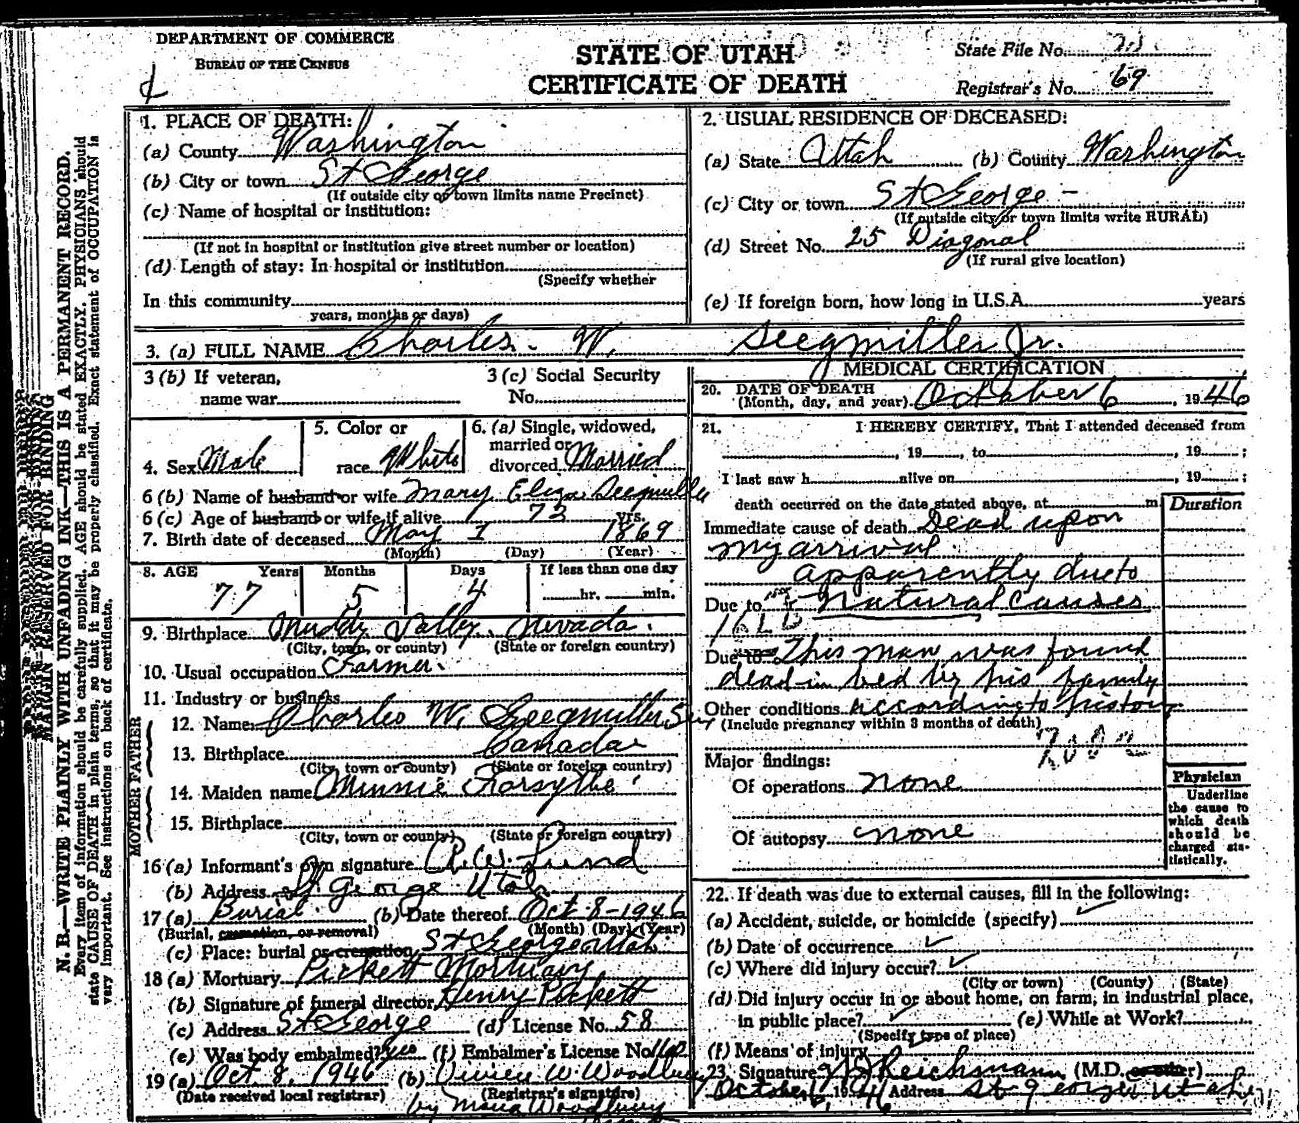 DEPARTMENT OF COMMERCE
BUREAU OF THE CENSUS
STATE OF UTAH
CERTIFICATE OF DEATH
State File No.
Registrar's No. 69
MARGIN RESERVED FOR BINDING
N. B.—WRITE PLAINLY WITH UNFADING INK—THIS IS A PERMANENT RECORD.
Every item of information should be carefully supplied. AGE should be stated EXACTLY. PHYSICIANS should
state CAUSE OF DEATH in plain terms, so that it may be properly classified. Exact statement of OCCUPATION is
very important. See instructions on back of certificate.
1. PLACE OF DEATH:
(a) County Washington
(b) City or town St George
(If outside city or town limits name Precinct)
(c) Name of hospital or institution:
(If not in hospital or institution give street number or location)
(d) Length of stay: In hospital or institution
(Specify whether
In this community
years, months or days)
2. USUAL RESIDENCE OF DECEASED:
(a) State Utah (b) County Washington
(c) City or town St George -
(If outside city or town limits write RURAL)
(d) Street No. 25 Diagonal
(If rural give location)
(e) If foreign born, how long in U.S.A. years
3. (a) FULL NAME Charles W. Seegmiller Jr.
3 (b) If veteran,
name war
3 (c) Social Security
No.
4. Sex Male
5. Color or
race White
6. (a) Single, widowed,
married or
divorced Married
6 (b) Name of husband or wife Mary Eliza Seegmiller
6 (c) Age of husband or wife if alive 73 yrs.
7. Birth date of deceased May 1 1869
(Month) (Day) (Year)
8. AGE Years Months Days If less than one day
77 5 4 hr. min.
9. Birthplace Muddy Valley, Nevada.
(City, town, or county) (State or foreign country)
10. Usual occupation Farmer.
11. Industry or business
FATHER
12. Name Charles W. Seegmiller Sen
13. Birthplace Canada
(City, town or county) (State or foreign country)
MOTHER
14. Maiden name Minnie Forsythe
15. Birthplace
(City, town or county) (State or foreign country)
16 (a) Informant's own signature R. W. Lund
(b) Address St George Utah
17 (a) Burial (b) Date thereof Oct 8-1946
(Burial, cremation, or removal) (Month) (Day) (Year)
(c) Place: burial or cremation St George Utah
18 (a) Mortuary Pickett Mortuary
(b) Signature of funeral director Henry Pickett
(c) Address St George (d) License No. 58
(e) Was body embalmed? yes (f) Embalmer's License No.
19 (a) Oct 8, 1946 (b) W Woodbury
(Date received local registrar) (Registrar's signature)
by Woodbury
MEDICAL CERTIFICATION
20. DATE OF DEATH
(Month, day, and year) October 6, 1946
21. I HEREBY CERTIFY, That I attended deceased from
, 19 , to , 19 ;
I last saw h alive on , 19 ;
death occurred on the date stated above, at m
Duration
Immediate cause of death Dead upon
my arrival
apparently due to
Due to natural causes
Due to This man was found
dead in bed by his family
Other conditions according to history
(Include pregnancy within 3 months of death)
Major findings:
Of operations none
Of autopsy none
Physician
Underline
the cause to
which death
should be
charged sta-
tistically.
22. If death was due to external causes, fill in the following:
(a) Accident, suicide, or homicide (specify)
(b) Date of occurrence
(c) Where did injury occur?
(City or town) (County) (State)
(d) Did injury occur in or about home, on farm, in industrial place,
in public place? (e) While at Work?
(Specify type of place)
(f) Means of injury
23. Signature Reichmann (M.D. or other)
October 6, 1946 Address St George Utah